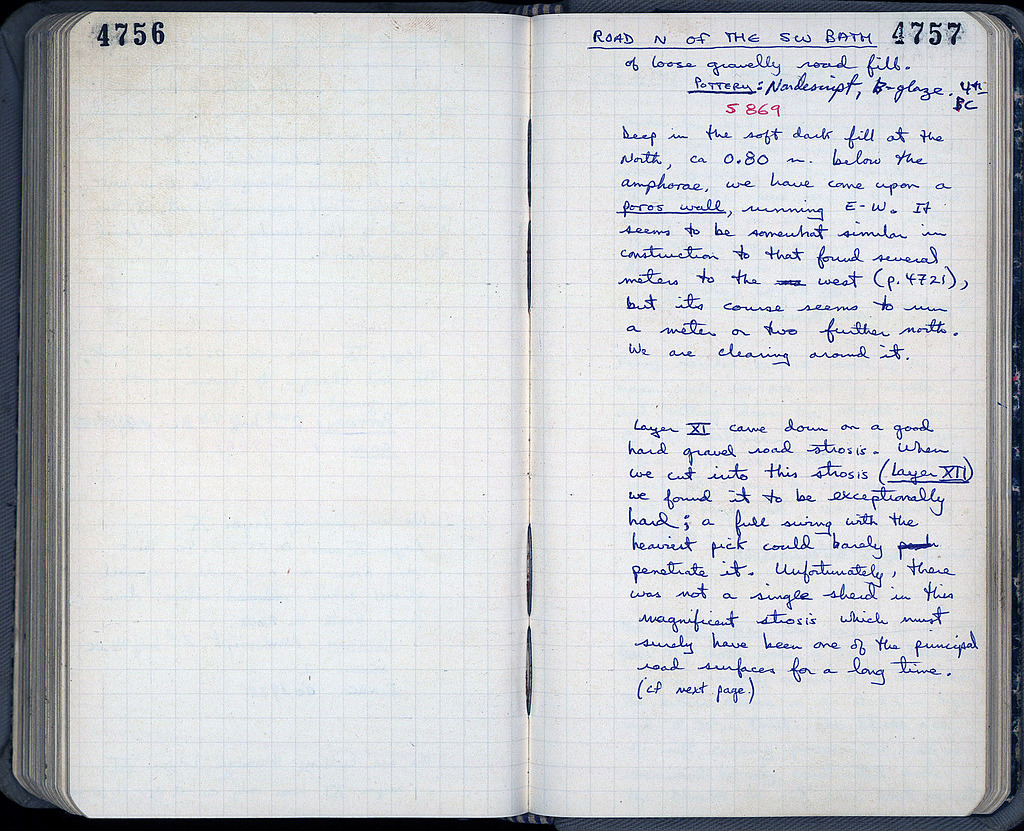 4756
ROAD N OF THE SW BATH 4757
of loose gravelly road fill.
POTTERY: Nondescript, B-glaze. 4th
BC
S 869
Deep in the soft dark fill at the
North, ca 0.80 m. below the
amphorae, we have come upon a
poros wall, running E-W. It
seems to be somewhat similar in
construction to that found several
meters to the west (p. 4721),
but its course seems to run
a meter or two further north.
We are clearing around it.
Layer XI came down on a good
hard gravel road strosis. When
we cut into this strosis (Layer XII)
we found it to be exceptionally
hard; a full swing with the
heaviest pick could barely
penetrate it. Unfortunately, there
was not a single sherd in this
magnificent strosis which must
surely have been one of the principal
road surfaces for a long time.
(cf next page)